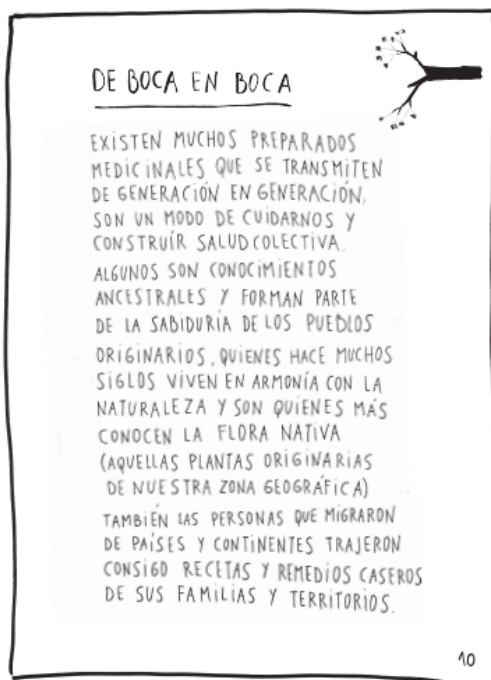 DE BOCA EN BOCA
EXISTEN MUCHOS PREPARADOS
MEDICINALES QUE SE TRANSMITEN
DE GENERACIÓN EN GENERACIÓN,
SON UN MODO DE CUIDARNOS Y
CONSTRUÍR SALUD COLECTIVA.
ALGUNOS SON CONOCIMIENTOS
ANCESTRALES Y FORMAN PARTE
DE LA SABIDURÍA DE LOS PUEBLOS
ORIGINARIOS, QUIENES HACE MUCHOS
SIGLOS VIVEN EN ARMONÍA CON LA
NATURALEZA Y SON QUIENES MÁS
CONOCEN LA FLORA NATIVA
(AQUELLAS PLANTAS ORIGINARIAS
DE NUESTRA ZONA GEOGRÁFICA)
TAMBIÉN LAS PERSONAS QUE MIGRARON
DE PAÍSES Y CONTINENTES TRAJERON
CONSIGO RECETAS Y REMEDIOS CASEROS
DE SUS FAMILIAS Y TERRITORIOS.
10